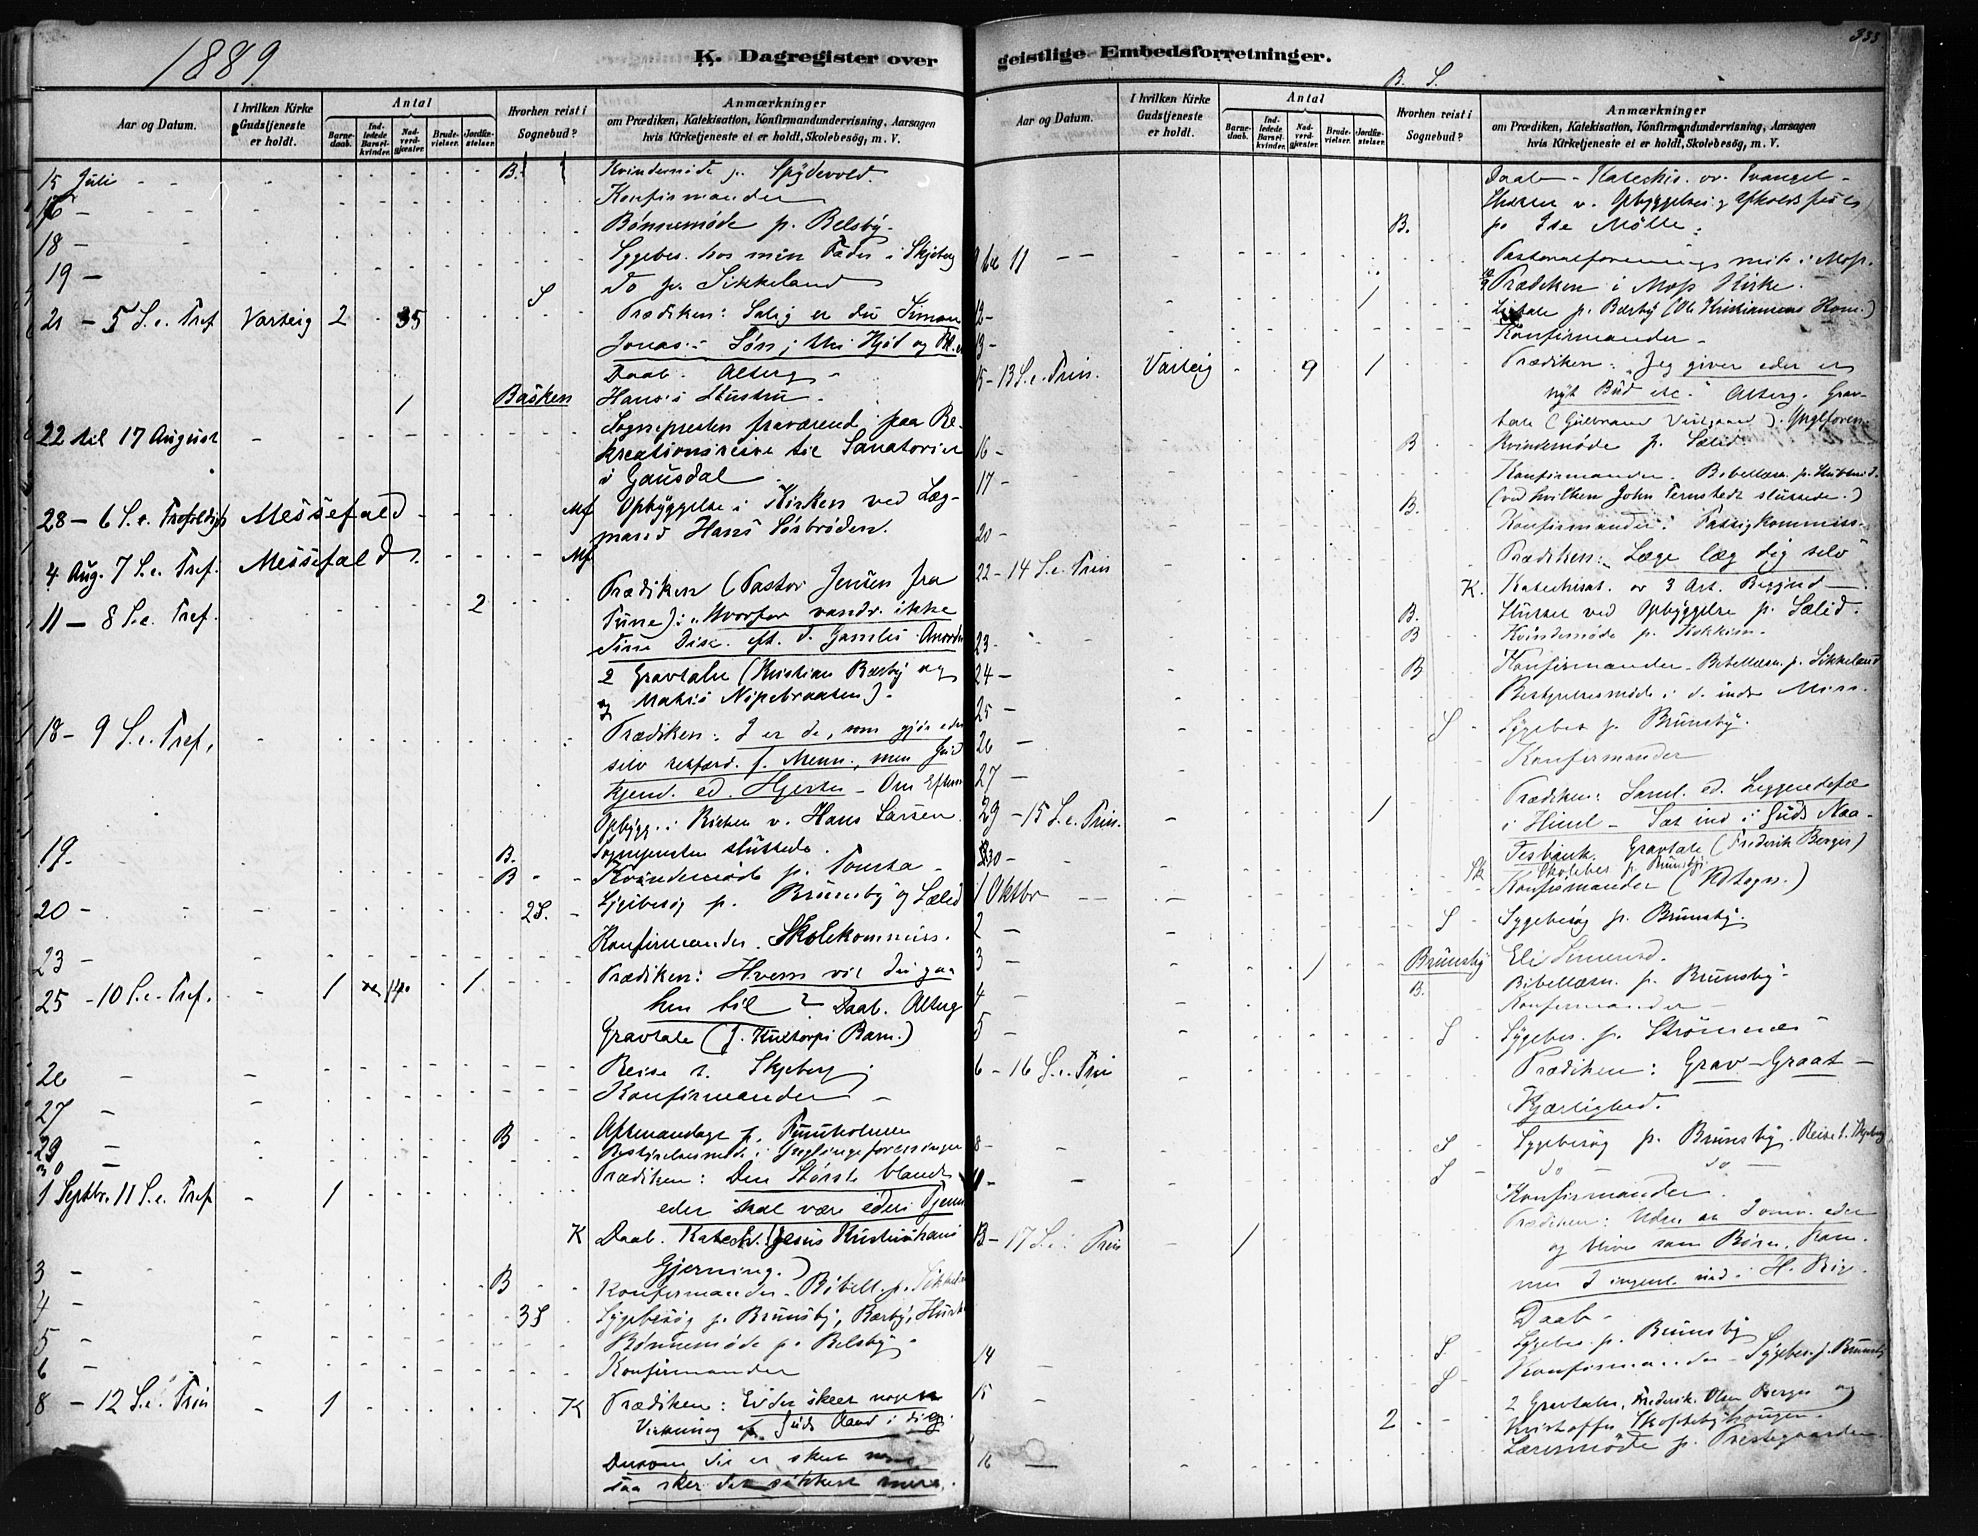 1889
K. Dagregister over
Aar og Datum.
I hvilken Kirke Gudstjeneste er holdt.
Antal
Barne-daab.
Ind-ledede Barsel-kvinder.
Nad-verd-gjæster.
Brude-vielser.
Jordfæ-stelser.
Hvorhen reist i Sognebud?
Anmærkninger
om Prædiken, Katekisation, Konfirmandundervisning, Aarsagen
hvis Kirketjeneste ei er holdt, Skolebesög, m. V.
15 Juli - - - B. Kvindemöde p. Spydevold.
16 - Konfirmander
Bönnemöde p. Belsby.
18 - Sygebes. hos min Fader i Skjeberg
19 - S Do p. Sikkeland
21 - 5 S. e. Tref Varteig 2 35 Prædiken: Salig er du Simon
Jonas: Søn; thi Kjöd og Bl.
Daab. Alterg -
1 Basken Hans's Hustru -
22 til 17 August Sognepresten fraværende paa Re-
kreationsreise til Sanatoriet
i Gausdal
28 - 6 S. e. Trefoldigh Messefald Mf Opbyggelse i Kirken ved Læg-
mand Hans Sörbröden.
4 Aug. 7 S. e. Tref. Messefald. Mf
11 - 8 S. e. Tref. 2 Prædiken (Pastor Jensen fra
Tune): "Hvorfor vandr. ikke
Dine Disc. eft. d. Gamles Anordn
2 Gravtaler (Kristian Bærby og
Mathis Nipebraaten).
18 - 9 S. e. Tref. Prædiken: I er de, som gjör eder
selv retfærd. f. Menn., men Gud
kjend. ed. Hjerter - Om Efterm
Opbygg. i Kirken v. Hans Larsen.
19. B. Sognepresten sluttede.
B Kvindemöde p. Tomta -
20 - 2 S. Sygebesög p. Brunsby og Sælid
Konfirmander. Skolekommiss.
23 -
25 - 10 S. e. Tref. 1 14 1 Prædiken: Hvem vil du gaa
hen til? Daab. Alterg
Gravtale (J. Kultorps Barn.)
26 - Reise t. Skjeberg
27 - Konfirmander -
29 - B Aftenandagt p. Tunholmen
30 - Bestyrelsesmöde i Ynglingeforeningen
1 Septbr. 11 S. e. Tref 1 Prædiken: Den Störste blandt
eder skal være eders Tjener
K Daab. Katech. (Jesus Kristus's hans
Gjerning.)
3 - B Konfirmander. Bibell. p. Sikkeland
4 - 3 S Sygebesög p. Brunsby, Bærby,
5 - Bönnemöde p. Belsby -
6 - Konfirmander
8 - 12 S. e. Trin 1 K Prædiken: Er der skeet nogen
Virkning af Guds Aand i dig.
Dersom det er skeet
saa sker det sikkert mere.
geistlige Embedsforretninger.
333
B. S.
Aar og Datum.
I hvilken Kirke Gudstjeneste er holdt.
Antal
Barne-daab.
Ind-ledede Barsel-kvinder.
Nad-verd-gjæster.
Brude-vielser.
Jordfæ-stelser.
Hvorhen reist i Sognebud?
Anmærkninger
om Prædiken, Katekisation, Konfirmandundervisning, Aarsagen
hvis Kirketjeneste ei er holdt, Skolebesög, m. V.
Daab - Katechis. ov. Evangel -
v. Opbyggelses og Afholdsfest
B. p. Ise Mölle.
11 - - Pastoralforenings möde i Moss.
Prædiken i Moss Kirke.
12 - 1 Ligtale p. Bærby (Ole Kristiansens Kone.)
13 - Konfirmander -
15 - 13 S. e. Trin. Varteig 9 1 Prædiken: "Jeg giver eder et
nyt Bud etc." Alterg. Grav-
tale (Gulbrand ). Ynglforen.
16 - B Kvindemöde p. Sælid
17 - Konfirmander. Bibellæsn. p.
B. (ved hvilken John Ternstedt sluttede.)
20 - Konfirmander. Fattigkommiss.
22 - 14 S. e. Trin Prædiken: Læge læg dig selv
K. Katechisat. ov 3 Art. Begynd -
B. ved Opbyggelse p. Sælid.
23 - B Kvindemöde p.
24 - B Konfirmander. Bibellæsn. p. Sikkeland
Bestyrelsesmöde i d. indre Miss.
25 - S Sygebes p. Brunsby.
26 -
27 - Konfirmander
29 - 15 S. e. Trin. 1 Prædiken: Saml. ed. Liggendefæ
i Himl - Sæt ind i Guds Naa-
des bank. Gravtale (Frederik Berger)
30 - Sk Skolebes p. Brunsby.
1 Oktbr - - Konfirmander
2 - S Sygebesög p. Brunsby.
3 - 1 Brunsby Eli Simensd.
4 - B. Bibellæsn. p. Brunsby.
Konfirmander -
5 - S Sygebes. p. Strömnes
6 - 16 S. e. Trin Prædiken: Grav - Graat -
Kjærlighed.
8 - S Sygebesög p. Brunsby. Reise t. Skjeberg
S do - do -
Konfirmander.
13 - 17 S. e. Trin 1 Prædiken: Uden at I omv. eder
og blive som Börn, kom-
mer I ingenl. ind i H. Rig.
Daab -
14 - S Sygebes. p. Brunsby
15 - S Konfirmander - Sygebes. p. Brunsby
2 2 Gravtaler, Frederik Olsen Berger og
Kristoffer Skoftebyhaugen.
16 - Læremöde p. Prestegaarden